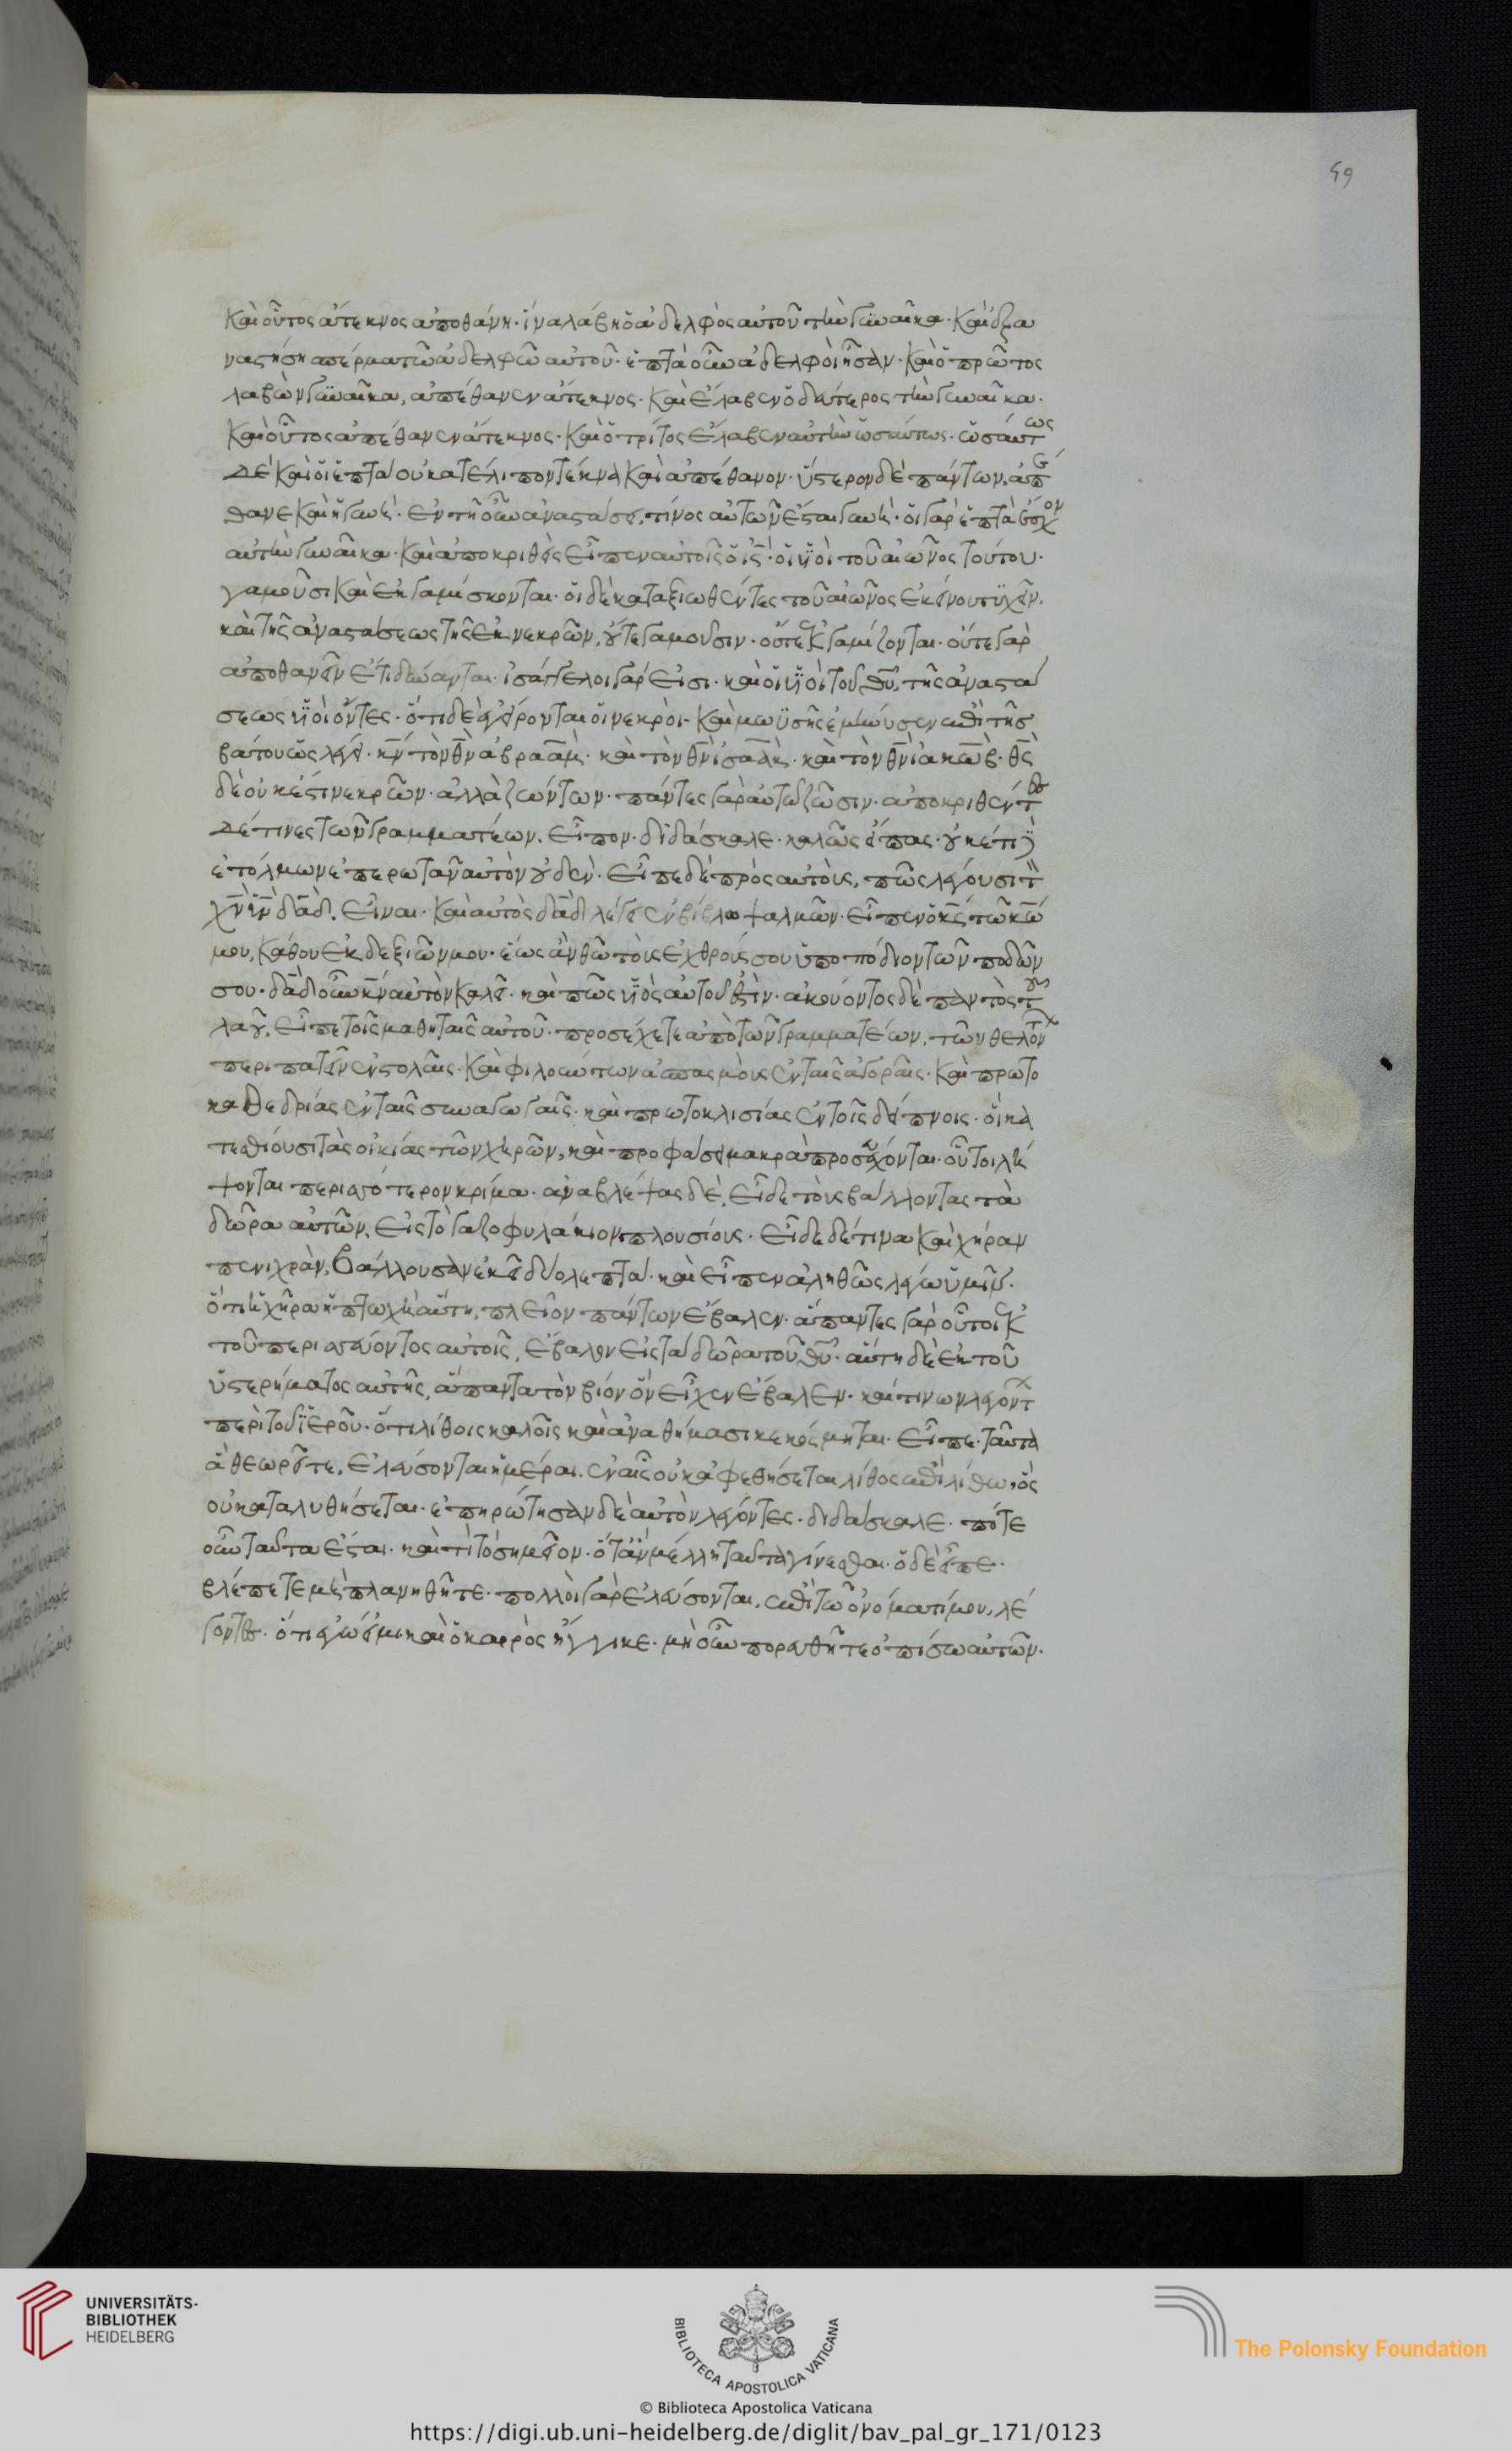 59
καὶ οὗτος ἄτεκνος ἀποθάνη· ἵνα λάβη ὁ ἀδελφὸς αὐτοῦ τὴν γυναῖκα· καὶ ἐξα
ναστήση σπέρμα τῶ ἀδελφῶ αὐτοῦ· ἑπτὰ οὖν ἀδελφοὶ ἦσαν· καὶ ὁ πρῶτος
λαβὼν γυναῖκα, ἀπέθανεν ἄτεκνος· καὶ ἔλαβεν ὁ δεύτερος τὴν γυναῖκα·
καὶ οὗτος ἀπέθανεν ἄτεκνος· καὶ ὁ τρίτος ἔλαβεν αὐτὴν ὡσαύτως· ὡσαύτως
δὲ καὶ οἱ ἑπτὰ οὐ κατέλιπον τέκνα καὶ ἀπέθανον· ὕστερον δὲ πάντων, ἀπέ
θανε καὶ ἡ γυνή· ἐν τῆ οὖν ἀναστάσει, τίνος αὐτῶν ἔσται γυνή· οἱ γὰρ ἑπτὰ ἔσχον
αὐτὴν γυναῖκα· καὶ ἀποκριθεὶς εἶπεν αὐτοῖς ὁ ις· οἱ υἱοὶ τοῦ αἰῶνος τούτου·
γαμοῦσι καὶ ἐκγαμίσκονται· οἱ δὲ καταξιωθέντες τοῦ αἰῶνος ἐκείνου τυχεῖν,
καὶ τῆς ἀναστάσεως τῆς ἐκ νεκρῶν, οὔτε γαμοῦσιν· οὔτε ἐκγαμίζονται· οὔτε γὰρ
ἀποθανεῖν ἔτι δύνανται· ἰσάγγελοι γάρ εἰσι· καὶ οἱ υἱοὶ τοῦ θυ, τῆς ἀναστά
σεως υἱοὶ ὄντες· ὅτι δὲ ἐγείρονται οἱ νεκροὶ· καὶ μωϋσῆς ἐμήνυσεν ἐπὶ τῆς
βάτου ὡς λέγει· κν τὸν θν ἀβραάμ· καὶ τὸν θν ἰσαάκ· καὶ τὸν θν ἰακώβ· θς
δὲ οὐκ ἔστι νεκρῶν· ἀλλὰ ζώντων· πάντες γὰρ αὐτῶ ζῶσιν· ἀποκριθέντες
δέ τινες τῶν γραμματέων, εἶπον· διδάσκαλε· καλῶς εἶπας· οὐκέτι δὲ
ἐτόλμων ἐπερωτᾶν αὐτὸν οὐδέν· εἶπε δὲ πρὸς αὐτούς, πῶς λέγουσι τὸν
χν υν δαδ, εἶναι· καὶ αὐτὸς δαδ λέγει ἐν βίβλω ψαλμῶν· εἶπεν ὁ κς τῶ κω
μου, κάθου ἐκ δεξιῶν μου· ἕως ἂν θῶ τοὺς ἐχθρούς σου ὑποπόδιον τῶν ποδῶν
σου· δαδ οὖν κν αὐτὸν καλεῖ· καὶ πῶς υἱὸς αὐτοῦ ἐστίν· ἀκούοντος δὲ παντὸς τοῦ
λαοῦ, εἶπε τοῖς μαθηταῖς αὐτοῦ· προσέχετε ἀπὸ τῶν γραμματέων, τῶν θελόντων
περιπατεῖν ἐν στολαῖς· καὶ φιλούντων ἀσπασμοὺς ἐν ταῖς ἀγοραῖς· καὶ πρωτο
καθεδρίας ἐν ταῖς συναγωγαῖς· καὶ πρωτοκλισίας ἐν τοῖς δείπνοις· οἳ κα
τεσθίουσι τὰς οἰκίας τῶν χηρῶν, καὶ προφάσει μακρὰ προσεύχονται· οὗτοι λή
ψονται περισσότερον κρίμα· ἀναβλέψας δὲ, εἶδε τοὺς βάλλοντας τὰ
δῶρα αὐτῶν, εἰς τὸ γαζοφυλάκιον πλουσίους· εἶδε δέ τινα καὶ χήραν
πενιχρὰν, βάλλουσαν ἐκεῖ δύο λεπτά· καὶ εἶπεν ἀληθῶς λέγω ὑμῖν·
ὅτι ἡ χήρα ἡ πτωχὴ αὕτη, πλεῖον πάντων ἔβαλεν· ἅπαντες γὰρ οὗτοι ἐκ
τοῦ περισσεύοντος αὐτοῖς, ἔβαλον εἰς τὰ δῶρα τοῦ θυ· αὕτη δὲ ἐκ τοῦ
ὑστερήματος αὐτῆς, ἅπαντα τὸν βίον ὃν εἶχεν ἔβαλεν· καί τινων λεγόντων
περὶ τοῦ ἱεροῦ· ὅτι λίθοις καλοῖς καὶ ἀναθήμασι κεκόσμηται· εἶπε· ταῦτα
ἃ θεωρεῖτε, ἐλεύσονται ἡμέραι, ἐν αἷς οὐκ ἀφεθήσεται λίθος ἐπὶ λίθω, ὃς
οὐ καταλυθήσεται· ἐπηρώτησαν δὲ αὐτὸν λέγοντες· διδάσκαλε· πότε
οὖν ταῦτα ἔσται· καὶ τί τὸ σημεῖον· ὅταν μέλλη ταῦτα γίνεσθαι· ὁ δὲ εἶπε·
βλέπετε μὴ πλανηθῆτε· πολλοὶ γὰρ ἐλεύσονται, ἐπὶ τῶ ὀνόματί μου, λέ
γοντες· ὅτι ἐγώ εἰμι· καὶ ὁ καιρὸς ἤγγικε· μὴ οὖν πορευθῆτε ὀπίσω αὐτῶν·
UNIVERSITÄTS-
BIBLIOTHEK
HEIDELBERG
BIBLIOTECA APOSTOLICA VATICANA
The Polonsky Foundation
© Biblioteca Apostolica Vaticana
https://digi.ub.uni-heidelberg.de/diglit/bav_pal_gr_171/0123